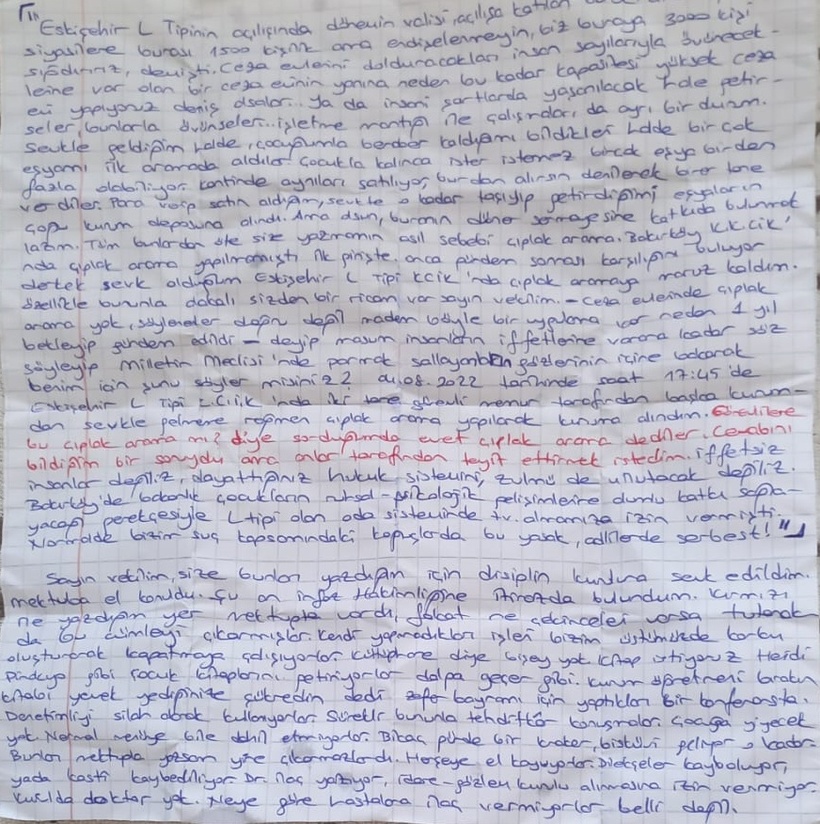 "Eskişehir L Tipinin açılışında dönemin valisi, açılışa katılan
siyasilere burası 1500 kişilik ama endişelenmeyin, biz buraya 3000 kişi
sığdırırız, demişti. Ceza evlerini dolduracakları insan sayılarıyla övünecek-
lerine var olan bir ceza evinin yanına neden bu kadar kapasitesi yüksek ceza
evi yapıyoruz demiş olsalar.. Ya da insani şartlarda yaşanılacak hale getir-
seler, bunlarla övünseler.. işletme mantığı ile çalışmaları da ayrı bir durum.
Sevkle geldiğim halde, çocuğumla beraber kaldığımı bildikleri halde bir çok
eşyamı ilk aramada aldılar. Çocukla kalınca ister istemez birçok eşya birden
fazla olabiliyor. Kantinde aynıları satılıyor, burdan alırsın denilerek birer tane
verdiler. Para verip satın aldığım, sevkle o kadar taşıyıp getirdiğim eşyaların
çoğu kurum deposuna alındı. Ama olsun, buranın döner sermayesine katkıda bulunmak
lazım. Tüm bunlardan öte size yazmamın asıl sebebi çıplak arama. Bakırköy K.K.C.İK'
nda çıplak arama yapılmamıştı ilk girişte. onca günden sonrası karşılığını buluyor
dertek sevk olduğum Eskişehir L Tipi KCİK'nda çıplak aramaya maruz kaldım.
Özellikle bununla alakalı sizden bir ricam var sayın vekilim. - Ceza evlerinde çıplak
arama yok, söylenenler doğru değil madem böyle bir uygulama var neden 1 yıl
bekleyip gündem edindi - deyip masum insanların iffetlerine varana kadar söz
söyleyip Milletin Meclisi'nde parmak sallayanların gözlerinin içine bakarak
benim için şunu söyler misiniz? 01.08.2022 tarihinde saat 17:45'de
Eskişehir L Tipi K.C.İ.K'nda iki tane görevli memur tarafından başka kurum-
dan sevkle gelmeme rağmen çıplak arama yapılarak kuruma alındım.
bu çıplak arama mı? diye sorduğumda evet çıplak arama dediler. Cevabını
bildiğim bir soruydu ama onlar tarafından teyit ettirmek istedim. iffetsiz
insanlar değiliz, dayattığınız hukuk sistemini, zulmü de unutacak değiliz.
Bakırköy'de bakanlık çocukların ruhsal-psikolojik gelişimlerine olumlu katkı sağla-
yacağı gerekçesiyle L tipi olan oda sisteminde tv. almamıza izin vermişti.
Normalde bizim suç kapsamındaki koğuşlarda bu yasak, adlilerde serbest!"
Sayın vekilim, size bunları yazdığım için disiplin kuruluna sevk edildim.
mektuba el konuldu. Şu an infaz Hakimliğine itirazda bulundum. Kırmızı
ne yazdığım yer mektupta vardı, fakat ne çekinceleri varsa tutanak
da bu cümleyi çıkarmışlar. Kendi yapmadıkları işleri bizim üstümüzde korku
oluşturarak kapatmaya çalışıyorlar. Kütüphane diye bişey yok. Kitap istiyoruz Heidi
Pindkyo gibi çocuk kitaplarını getiriyorlar dalga geçer gibi. Kurum öğretmeni bırakın
kitabı yemek yediğinize şükredin dedi zafer bayramı için yaptıkları bir konferansta.
Denetimliği silah olarak kullanıyorlar. Sürekli bununla tehditkâr konuşmalar. Çocuğa yiyecek
yok. Normal menüye bile dahil etmiyorlar. Birkaç günde bir kraker, bisküvi geliyor o kadar.
Bunları mektupla yazsam yine çıkarmazlardı. Herşeye el koyuyorlar. Dilekçeler kayboluyor,
yada kasti kaybediliyor. Dr. ilaç yazıyor, idare-gözlem kurulu alınmasına izin vermiyor.
kurulda doktor yok. Neye göre hastalara ilaç vermiyorlar belli değil.